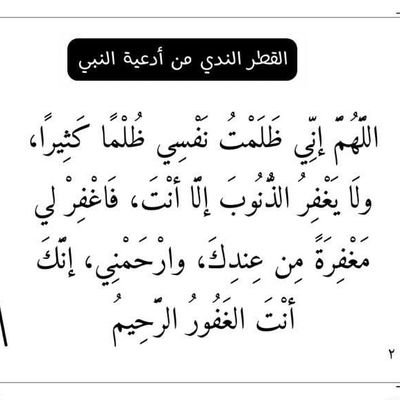 القطر الندي من أدعية النبي
اللَّهُمَّ إنِّي ظَلَمْتُ نَفْسِي ظُلْمًا كَثِيرًا،
ولَا يَغْفِرُ الذُّنُوبَ إلَّا أنْتَ، فَاغْفِرْ لي
مَغْفِرَةً مِن عِندِكَ، وارْحَمْنِي، إنَّكَ
أنْتَ الغَفُورُ الرَّحِيمُ
٢